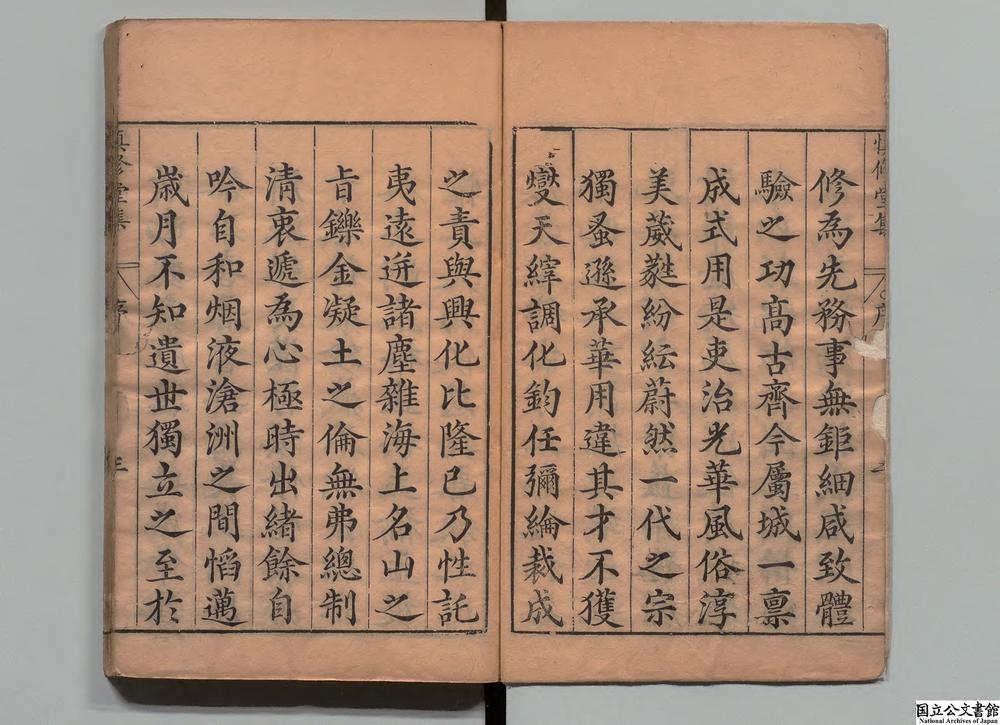 修為先務事無鉅細咸致體
驗之功高古齊今屬城一禀
成式用是吏治光華風俗淳
美葳蕤紛紜蔚然一代之宗
獨蚤遜承華用違其才不獲
燮天繹調化鈞任彌綸裁成
之責與興化比隆已乃性託
夷遠迸諸塵雜海上名山之
旨鑠金凝土之倫無弗總制
清衷遞為心極時出緒餘自
吟自和烟液滄洲之間慆邁
歲月不知遺世獨立之至於
慎修堂集
序
三
国立公文書館
National Archives of Japan